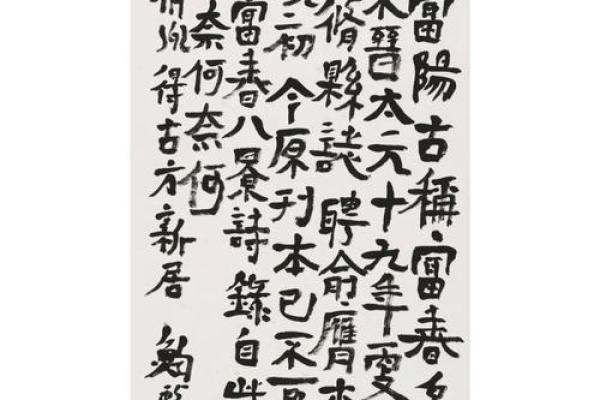 富陽古稱富春
晉太元十九年更
脩縣誌聘俞膺
初今原刊本已不可
富春八景詩錄自
奈何奈何
得古方新居